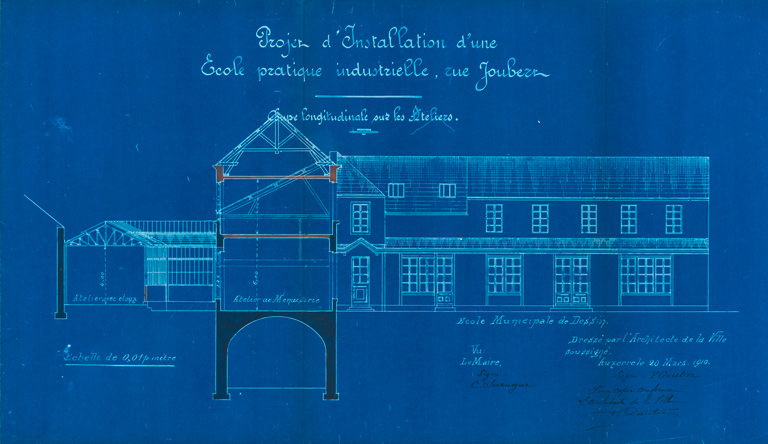 Projet d'Installation d'une
Ecole pratique industrielle, rue Joubert
Coupe longitudinale sur les Ateliers.
Atelier de Menuiserie
Ecole Municipale de Dessin.
Echelle de 0,01 p. mètre
Dressé par l'Architecte de la Ville
soussigné.
Auxerre le 20 Mars 1910.
Vu:
Le Maire,
Signé